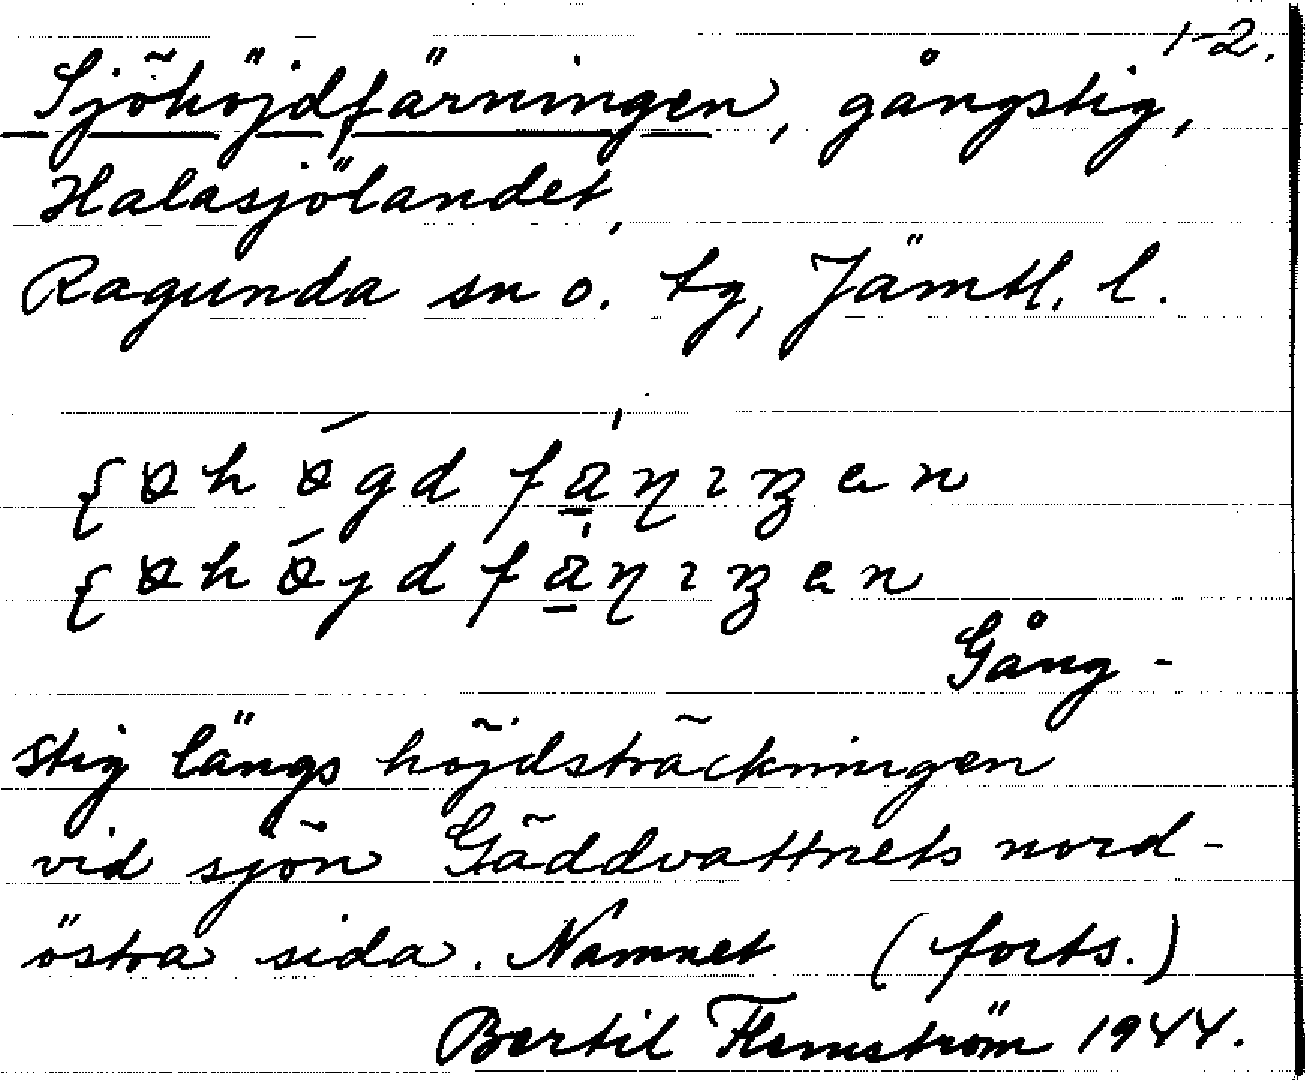 1-2.
Sjöhöjdfärningen, gångstig,
Halasjölandet,
Ragunda sn o. tg, Jämtl. l.
Gång-
stig längs höjdsträckningen
vid sjön Gäddvattnets nord-
östra sida. Namnet (forts.)
Bertil Flemström 1944.